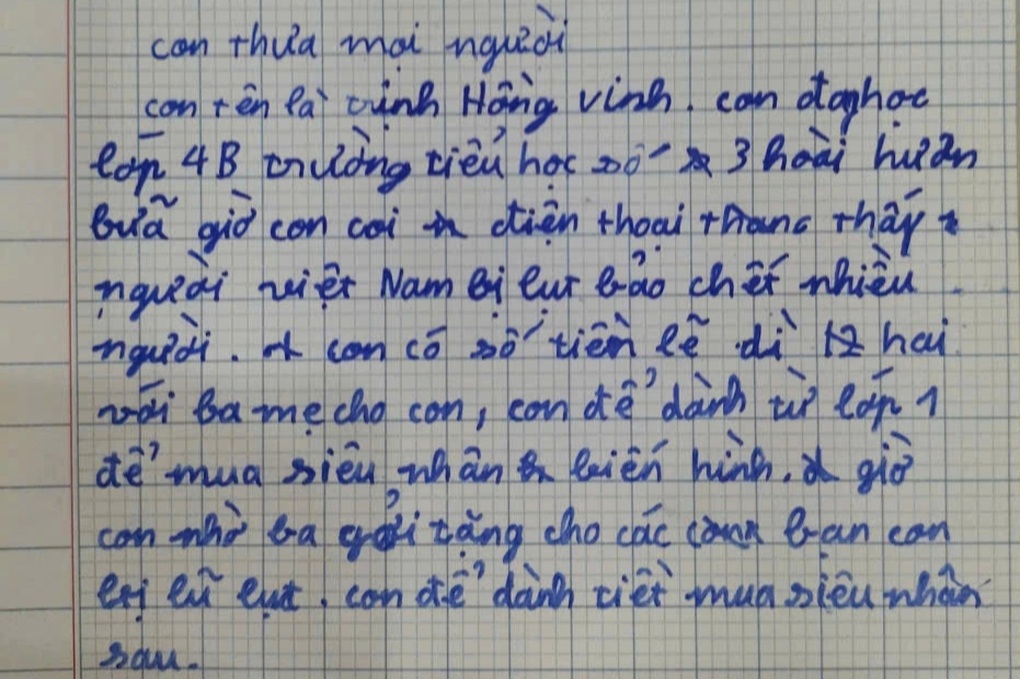 con thưa mọi người
con tên là trịnh Hồng vinh. con đaghọc
lớp 4B trường tiểu học số 3 hoài hương
bữa giờ con coi điện thoại thấy
người việt Nam bị lụt bảo chết nhiều
người. con có số tiền lẽ dì 12 hai
với ba mẹ cho con, con để dành từ lớp 1
để mua siêu nhân biến hình. giờ
con nhờ ba gởi tặng cho các bạn con
bị lũ lụt. con để dành tiết mua siêu nhân
sau.